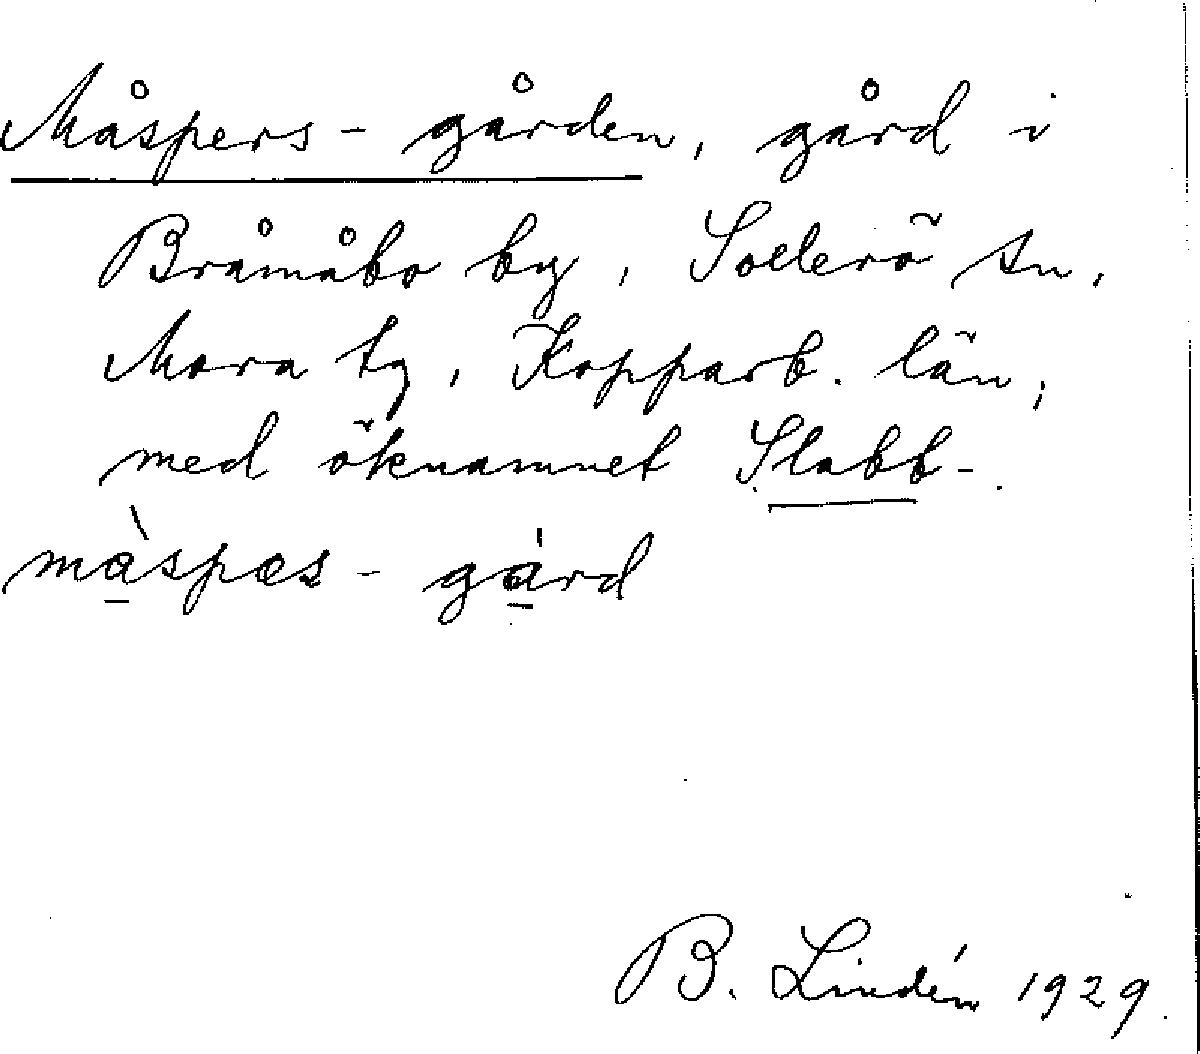 Måspers-gården, gård i
Bråmåbo by, Sollerö sn,
Mora tg, Kopparb. län,
med öknamnet Slabb-.
màspæs-gárd
B. Lindén 1929.